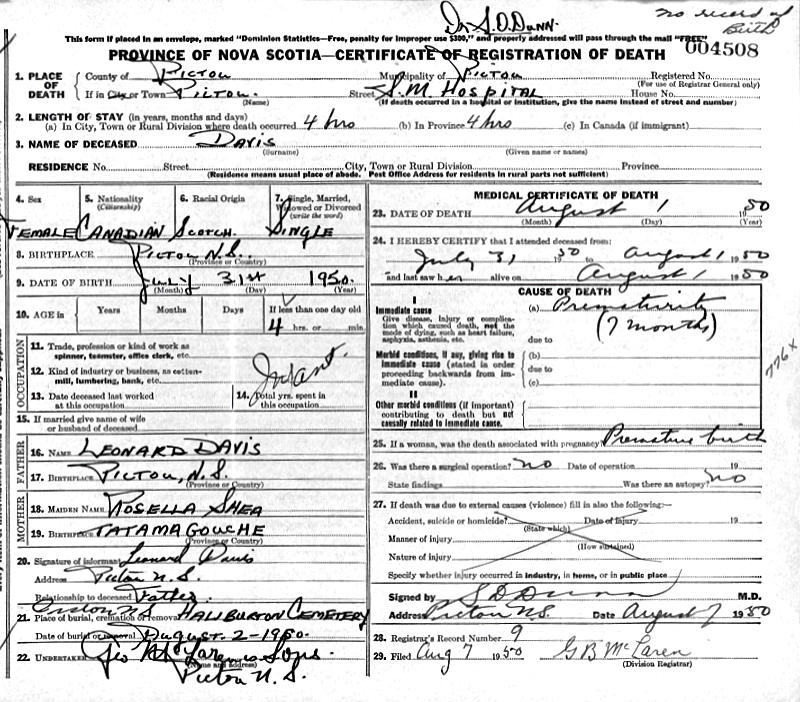 Dr. S.D. Dunn.
no record of Birth
This form if placed in an envelope, marked "Dominion Statistics—Free, penalty for improper use $300," and properly addressed will pass through the mail "FREE"
004508
PROVINCE OF NOVA SCOTIA—CERTIFICATE OF REGISTRATION OF DEATH
1. PLACE OF DEATH
County of Pictou Municipality of Pictou Registered No.
(For use of Registrar General only)
If in City or Town Pictou. Street S.M. Hospital House No.
(Name) (If death occurred in a hospital or institution, give the name instead of street and number)
2. LENGTH OF STAY (in years, months and days)
(a) In City, Town or Rural Division where death occurred 4 hrs (b) In Province 4 hrs (c) In Canada (if immigrant)
3. NAME OF DECEASED Davis
(Surname) (Given name or names)
RESIDENCE No. Street City, Town or Rural Division Province
(Residence means usual place of abode. Post Office Address for residents in rural parts not sufficient)
4. Sex 5. Nationality (Citizenship) 6. Racial Origin 7. Single, Married, Widowed or Divorced (write the word)
Female Canadian Scotch. Single
8. BIRTHPLACE Pictou N.S.
(Province or Country)
9. DATE OF BIRTH July 31st 1950.
(Month) (Day) (Year)
10. AGE in Years Months Days If less than one day old
4 hrs. or min.
OCCUPATION
11. Trade, profession or kind of work as spinner, teamster, office clerk, etc.
12. Kind of industry or business, as cotton-mill, lumbering, bank, etc.
Infant.
13. Date deceased last worked at this occupation
14. Total yrs. spent in this occupation
15. If married give name of wife or husband of deceased
FATHER
16. NAME Leonard Davis
17. BIRTHPLACE Pictou, N.S.
(Province or Country)
MOTHER
18. MAIDEN NAME Rosella Shea
19. BIRTHPLACE Tatamagouche
(Province or Country)
20. Signature of informant Leonard Davis
Address Pictou N.S.
Relationship to deceased Father
21. Place of burial, cremation or removal Haliburton Cemetery
Date of burial or removal August 2-1950.
22. UNDERTAKER Geo McLaren & Sons.
(Name and address)
Pictou N.S.
MEDICAL CERTIFICATE OF DEATH
23. DATE OF DEATH August 1 1950
(Month) (Day) (Year)
24. I HEREBY CERTIFY that I attended deceased from:
July 31 1950 to August 1 1950
and last saw her alive on August 1 1950
CAUSE OF DEATH
I
Immediate cause (a) Prematurity
Give disease, injury or complication which caused death, not the mode of dying, such as heart failure, asphyxia, asthenia, etc.
(7 months)
due to
Morbid conditions, if any, giving rise to immediate cause (stated in order proceeding backwards from immediate cause)
(b)
due to
(c)
II
Other morbid conditions (if important) contributing to death but not causally related to immediate cause.
776x
25. If a woman, was the death associated with pregnancy? Premature birth
26. Was there a surgical operation? no Date of operation 19
State findings Was there an autopsy? no
27. If death was due to external causes (violence) fill in also the following:—
Accident, suicide or homicide? Date of injury 19
(State which)
Manner of injury
(How sustained)
Nature of injury
Specify whether injury occurred in industry, in home, or in public place
Signed by S D Dunn M.D.
Address Pictou N.S. Date August 7 1950
28. Registrar's Record Number 9
29. Filed Aug 7 1950 G B McLaren
(Division Registrar)